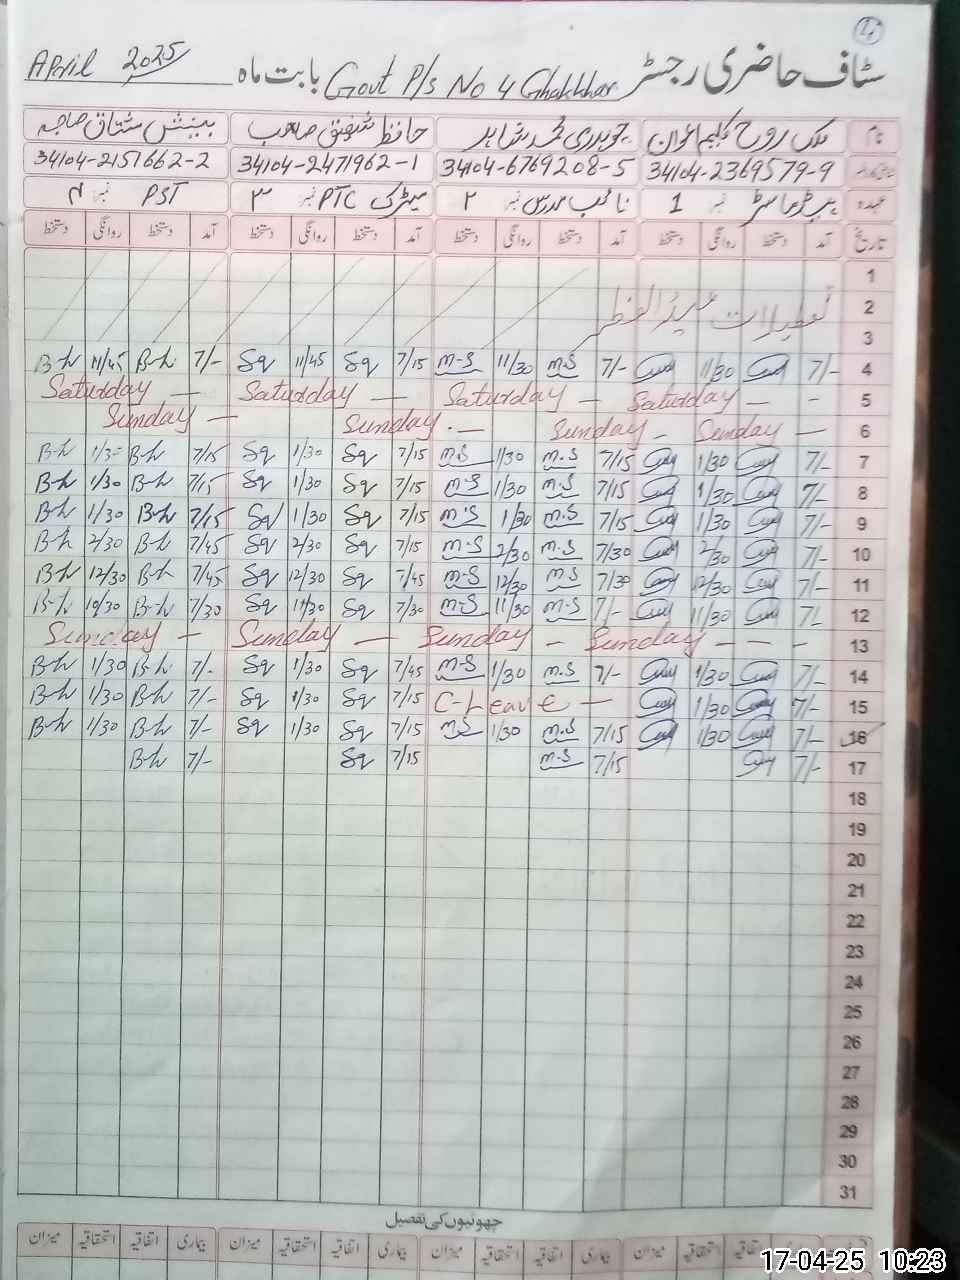 سٹاف حاضری رجسٹر Govt P/s No 4 Ghakhhar بابت ماہ April 2025
نام ملک روح کلیم اعوان چوہدری محمد شاہد حافظ شفیق صاحب بینش مشتاق صاحبہ
34104-2369579-9 34104-6769208-5 34104-2471962-1 34104-2151662-2
عہدہ ہیڈ ماسٹر نمبر 1 نائب مدرس نمبر ۲ میٹرک PTC نمبر ۳ PST نمبر ۴
تاریخ آمد دستخط روانگی دستخط آمد دستخط روانگی دستخط آمد دستخط روانگی دستخط آمد دستخط روانگی دستخط
1
2 تعطیلات عید الفطر
3
4 7/- 11/30 7/- m.s 11/30 m-s 7/15 Sq 11/45 Sq 7/- B-h 11/45 B-h
5 - - Saturday - Saturday - Saturday - Saturday
6 - Sunday - Sunday - Sunday - Sunday
7 7/- 1/30 7/15 m.s 1/30 m.s 7/15 Sq 1/30 Sq 7/15 B-h 1/3- B-h
8 7/- 1/30 7/15 m.s 1/30 m.s 7/15 Sq 1/30 Sq 7/15 B-h 1/30 B-h
9 7/- 1/30 7/15 m-s 1/30 m's 7/15 Sq 1/30 Sq 7/15 B-h 1/30 B-h
10 7/- 2/30 7/30 m-s 2/30 m-s 7/15 Sq 2/30 Sq 7/45 B-h 2/30 B-h
11 7/- 12/30 7/30 m.s 12/30 m-s 7/45 Sq 12/30 Sq 7/45 B-h 12/30 B-h
12 7/- 11/30 7/- m-s 11/30 m-s 7/30 Sq 11/30 Sq 7/30 B-h 10/30 B-h
13 - - - Sunday - Sunday - Sunday - Sunday
14 7/- 1/30 7/- m.s 1/30 m-s 7/45 Sq 1/30 Sq 7/- B-h 1/30 B-h
15 7/- 1/30 C-Leave - 7/15 Sq 1/30 Sq 7/- B-h 1/30 B-h
16 7/- 1/30 7/15 m.s 1/30 m.s 7/15 Sq 1/30 Sq 7/- B-h 1/30 B-h
17 7/- 7/15 m-s 7/15 Sq 7/- B-h
18
19
20
21
22
23
24
25
26
27
28
29
30
31
چھٹیوں کی تفصیل
اتفاقیہ استحقاقیہ میزان بیماری اتفاقیہ استحقاقیہ میزان بیماری اتفاقیہ استحقاقیہ میزان بیماری اتفاقیہ استحقاقیہ میزان
17-04-25 10:23